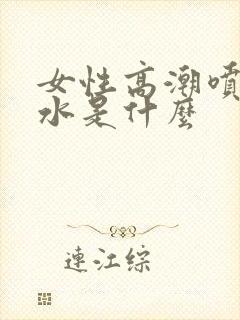 女性高潮噴
水是什麼
連江綜